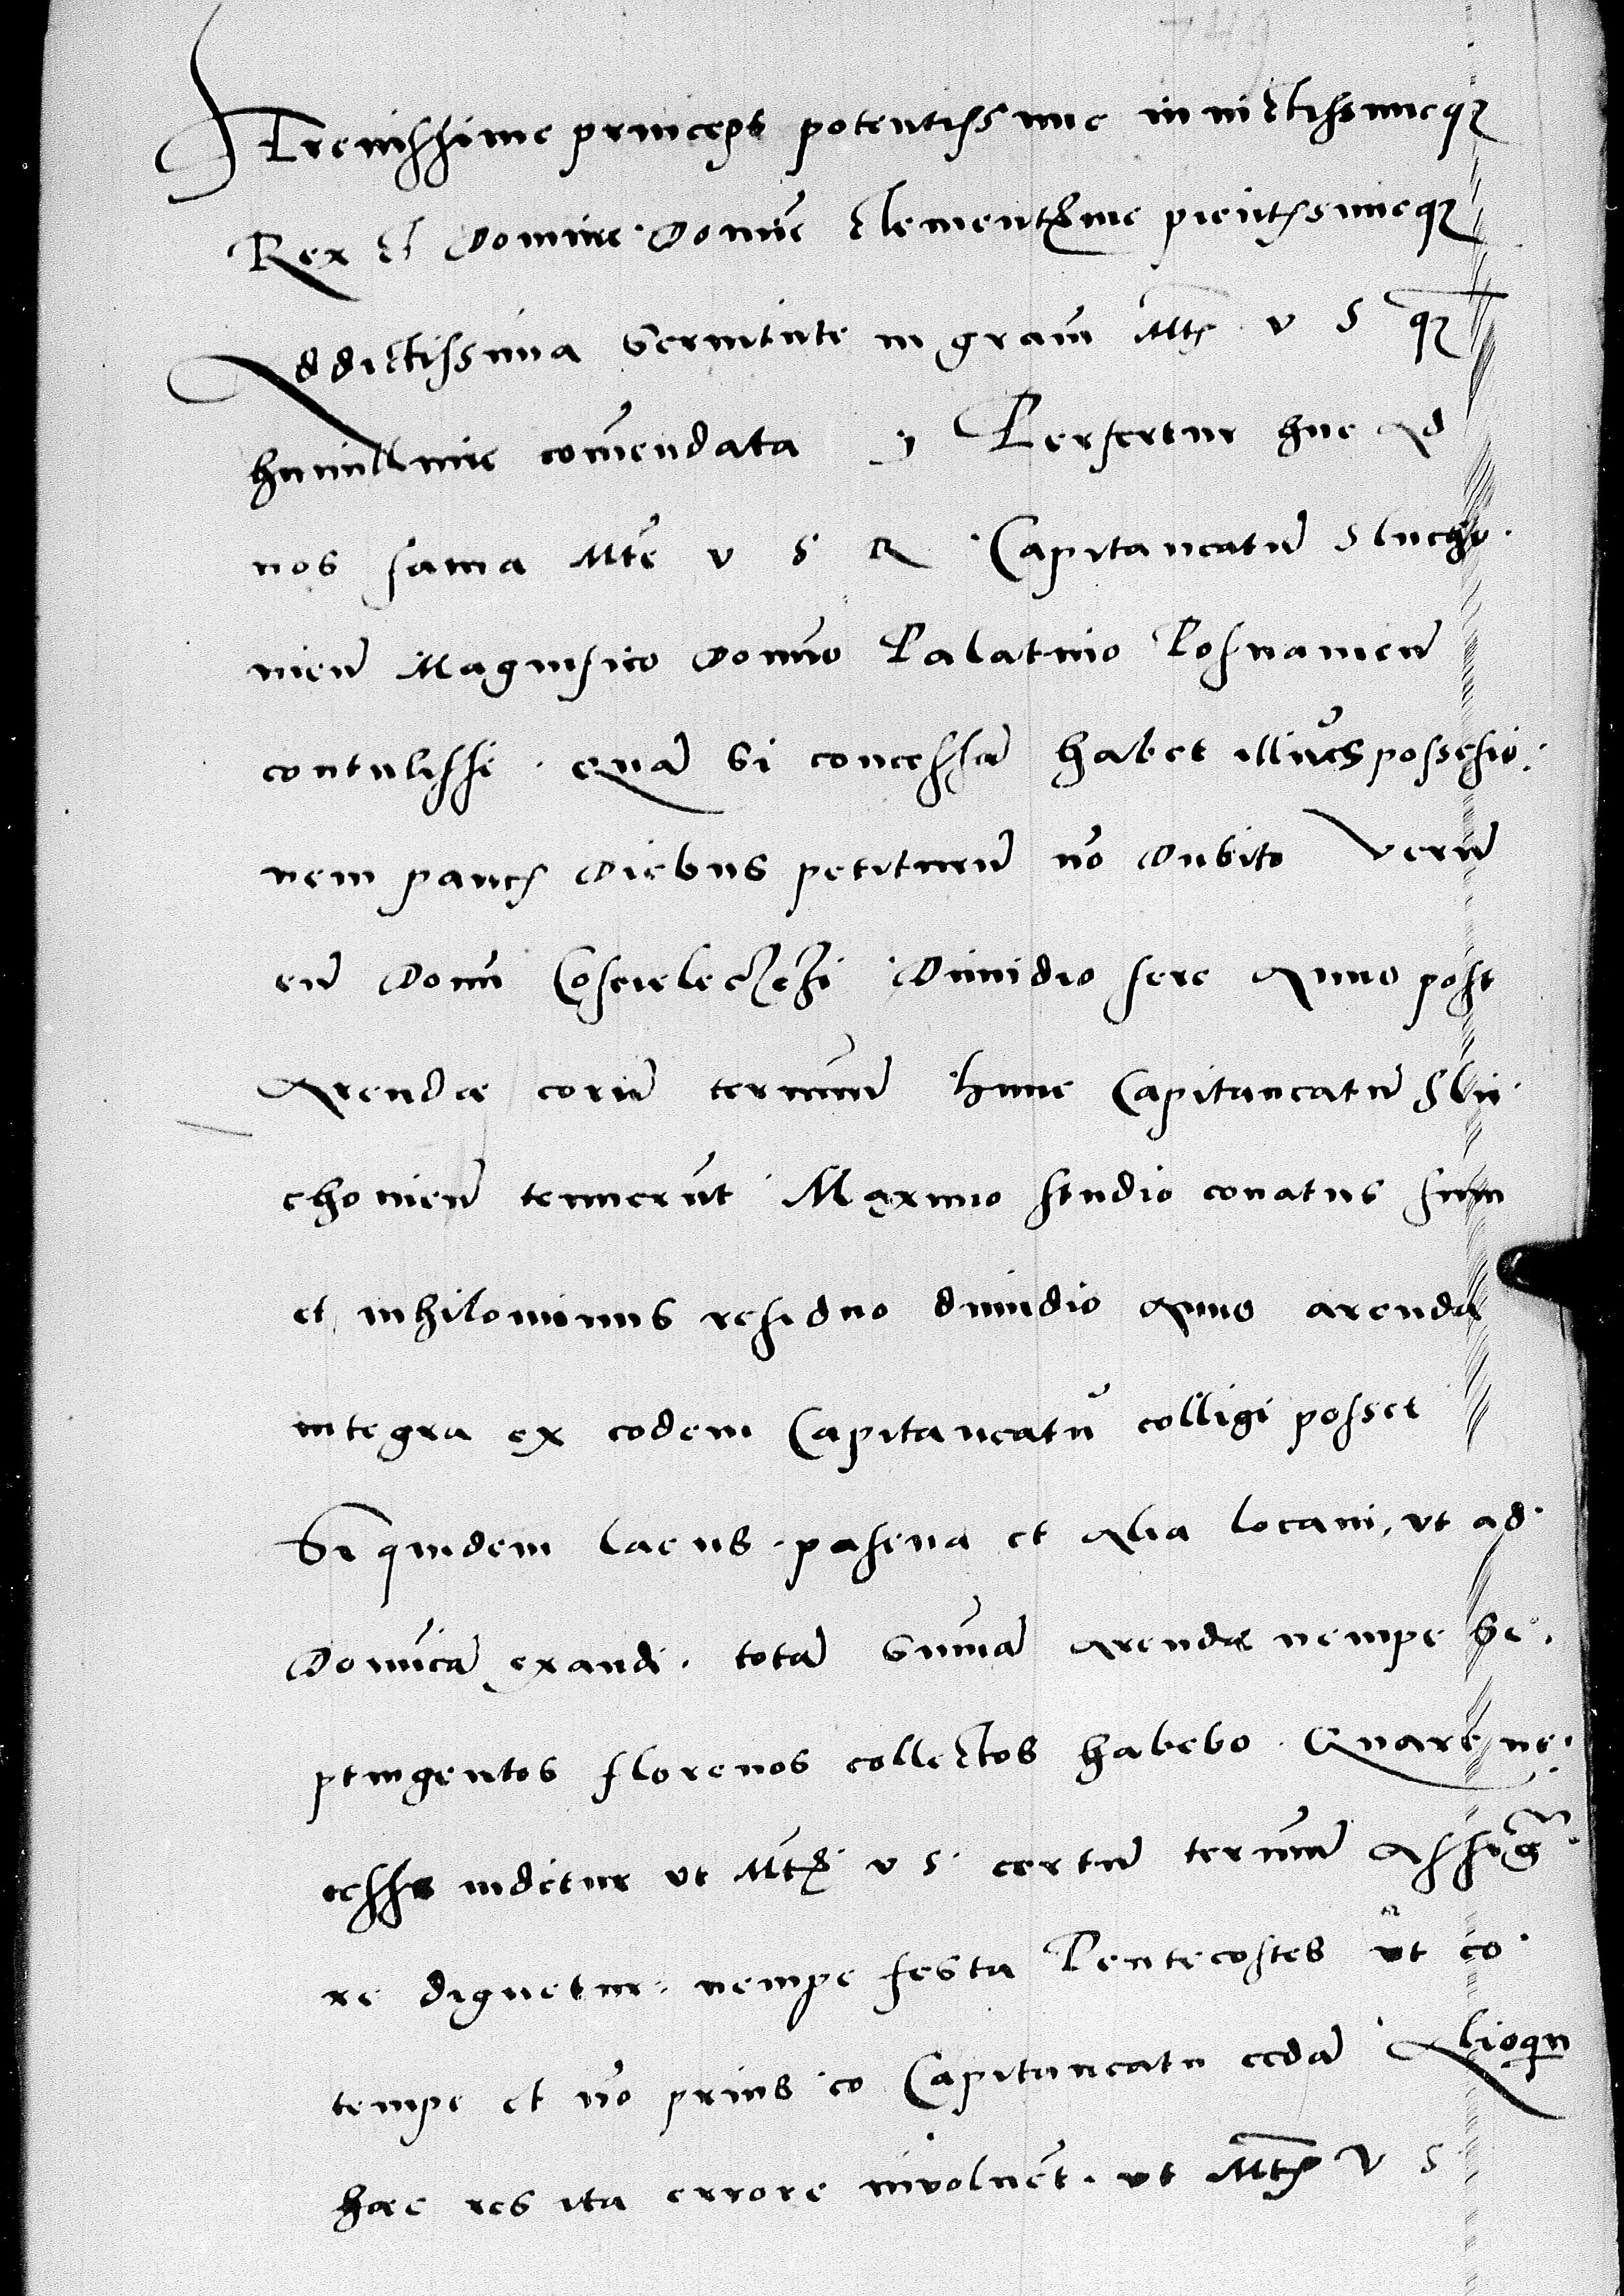 Serenissime princeps potentissime invictissimeq₃
Rex et Domine Domine Clementissime pientissimeq₃
Addictissima servitute in gratiam Mtis v S q₃
humillime comendata Perfertur huc ad
nos fama Mtē v S R Capitaneatū Sluchо
vien̄ Magnifico Domino Palatino Posnanien̄
contulisse. quā si concessā habet illius possessio
nem paucis diebus petiturū nō dubito Verū
cū Domini Coscieleczczi dimidio fere Anno post
Arendae eorū terminū hunc Capitaneatū Slu
chovien̄ tenuerūt Maximo studio conatus sum
et nihilominus residuo dimidio Anno arenda
integra ex eodem Capitaneatu colligi posset
Si quidem lacus. pascua et alia locavi, ut ad
Dominicā exaudi. totā summā arendae nempe se
ptingentos florenos collectos habebo. Quare ne
cesse videtur ut Mtas v S. certū terminū assigna
re dignetur. nempe festa Pentecostes ut eo
tempe et nō prius eo Capitaneatu cedā Alioqn
haec res ita errore involuēt. ut Mtas V S